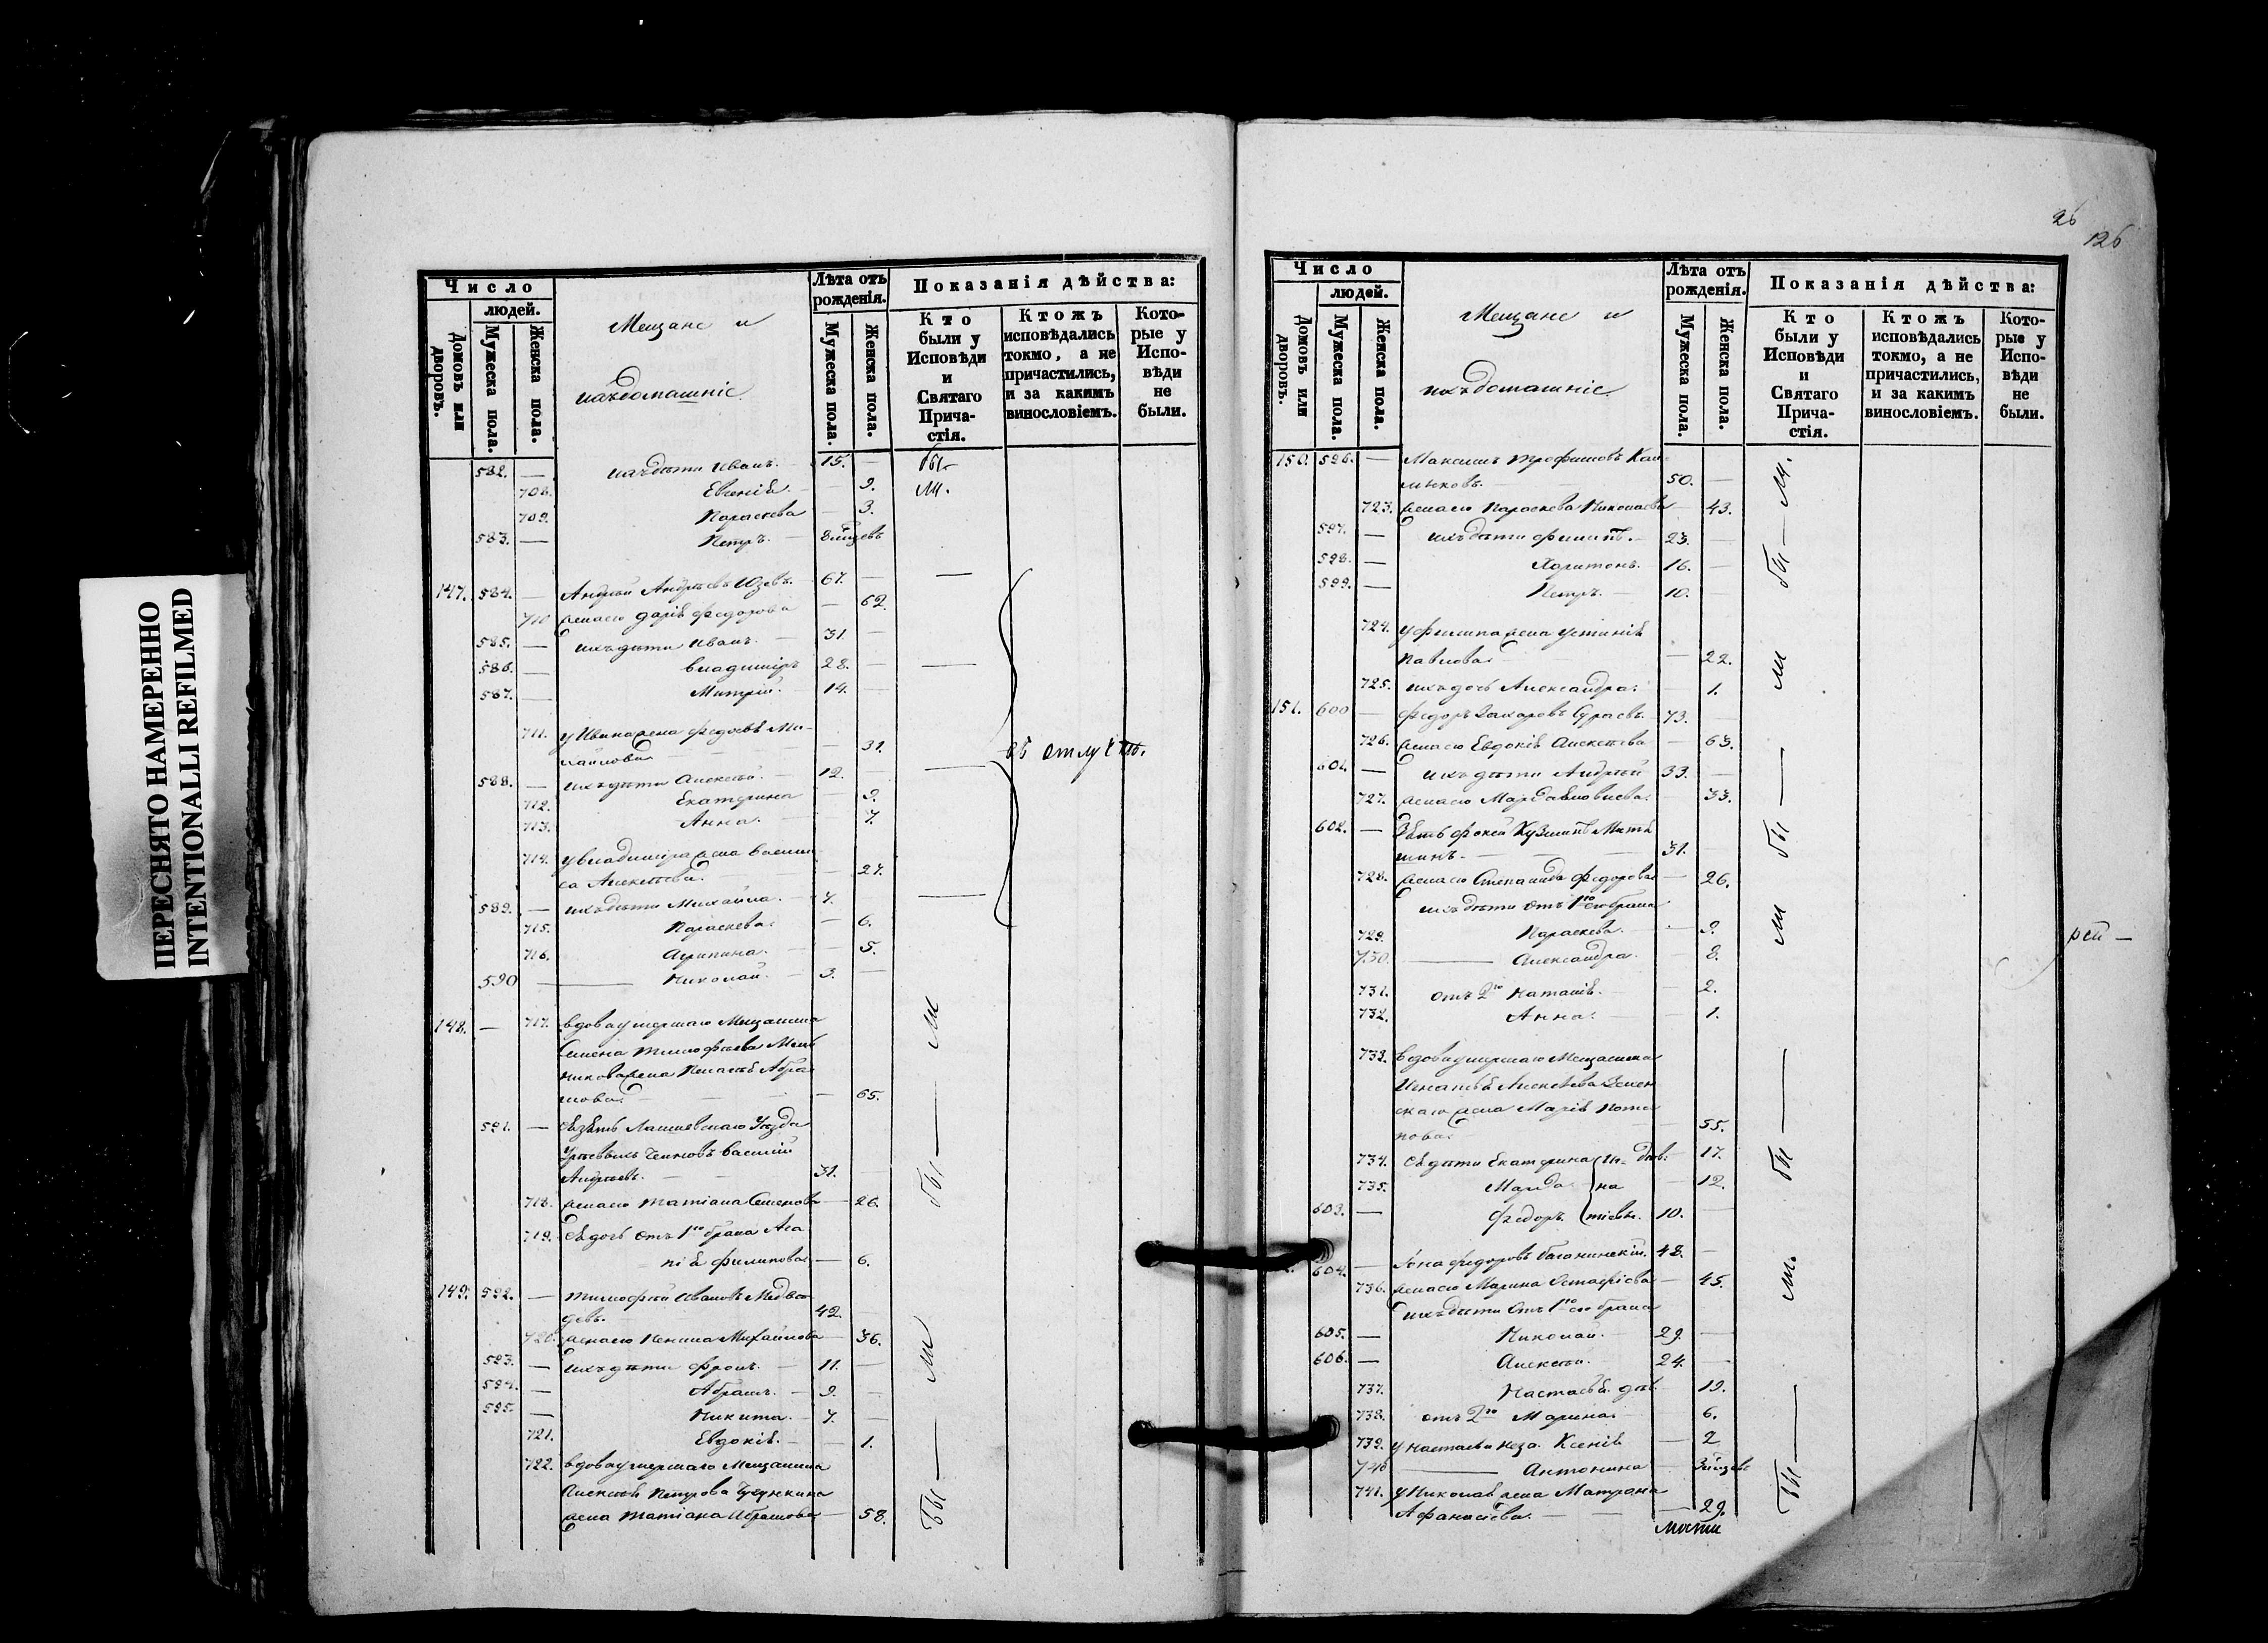 ПЕРЕСНЯТО НАМЕРЕННО
INTENTIONALLI REFILMED
Число
людей.
Домовъ или дворовъ.
Мужеска пола.
Женска пола.
Мещане и
ихъ домашніе
Лѣта отъ рожденія.
Мужеска пола.
Женска пола.
Показанія дѣйства:
Кто были у Исповѣди и Святаго Прича-стія.
Ктожъ исповѣдались токмо, а не причастились, и за какимъ винословіемъ.
Кото-рые у Испо-вѣди не были.
582. — ихъ дѣти Иванъ. 15. — бы-
708. Евгенія — 9. ли.
709. Параскева — 3.
583. — Петръ.
147. 584. — Андрей Андреевъ 67. —
710 жена его Дарія Федорова — 62.
585. — ихъ дѣти Иванъ. 31. —
586. — Владиміръ 28. —
587. — Митрій. 14. —
711. у Ивана жена Федосья Ми-
хайлова — 31. въ отлучкѣ.
588. — ихъ дѣти Алексѣй. 12. —
712. Екатерина — 9.
713. Анна. — 7.
714. у Владиміра жена Васили
са Алексѣева. — 27.
589. — ихъ дѣти Михайла. 7.
715. Параскева. — 6.
716. Агрипина. — 5.
590 — Николай. 3. —
148. — 717. вдова умершаго Мещанина
Семена Тимофеева Мель
никова жена Пелагея Абра
мова. — 65.
591. — Ея зять
Василій
Андреевъ. 31. —
718. жена его Татіана Семенова — 26.
719. Ея дочь отъ 1го брака Ага
пія Филипова — 6.
149. 592. — Тимофей Ивановъ Медвѣ
девъ. 42.
720. жена его Ксенія Михайлова — 36.
593. — ихъ дѣти Фролъ. 11. —
594. — Абрамъ. 9. —
595. — Никита. 7. —
721. Евдокія. — 1.
722. вдова умершаго Мещанина
Алексѣя Петрова
жена Татіана Абрамова — 58.
бы — ли
Бы — ли
26
126
Число
людей.
Домовъ или дворовъ.
Мужеска пола.
Женска пола.
Мещане и
ихъ домашніе
Лѣта отъ рожденія.
Мужеска пола.
Женска пола.
Показанія дѣйства:
Кто были у Исповѣди и Святаго Прича-стія.
Ктожъ исповѣдались токмо, а не причастились, и за какимъ винословіемъ.
Кото-рые у Испо-вѣди не были.
150. 596. — Максимъ Трофимовъ Кал-
мыковъ. 50. —
723. жена его Параскева Николаева — 43.
597. — ихъ дѣти Филипъ. 23. —
598. — Харитонъ. 16. —
599. — Петръ. 10. —
724. у Филипа жена Устинія
Павлова — 22.
725. ихъ дочь Александра. — 1.
151. 600 — Федоръ Захаровъ Сураевъ. 73. —
726. жена его Евдокія Алексѣева — 63.
601. — ихъ дѣти Андрей 33. —
727. жена его — 33.
602. — Зять Фокей Кузминъ Митя
шинъ. 31.
728. жена его Степанида Федорова — 26.
ихъ дѣти отъ 1го его брака
729. Параскева. — 9.
730. — Александра. — 8.
731. отъ 2го Наталія. — 2.
732. Анна. — 1.
733. вдова умершаго Мещанина
Игнатья Алексѣева
жена Марія Пота
пова — 55.
734. Ея дѣти Екатерина — 17.
735. — 12.
603. — Федоръ 10. —
604. — Іона Федоровъ 48. —
736. жена его Марина Остафіева — 45.
ихъ дѣти отъ 1го его брака
605. — Николай. 29. —
606. — Алексѣй. 24. —
737. Настасья дѣв. — 19.
738. отъ 2го Марина. — 6.
739. у Настасьи неза. Ксенія — 2
740 — Антонина
741. у Николая жена Матрона
Афанасіева. — 29.
бы — ли.
бы — ли
бы — ли.
Бы —